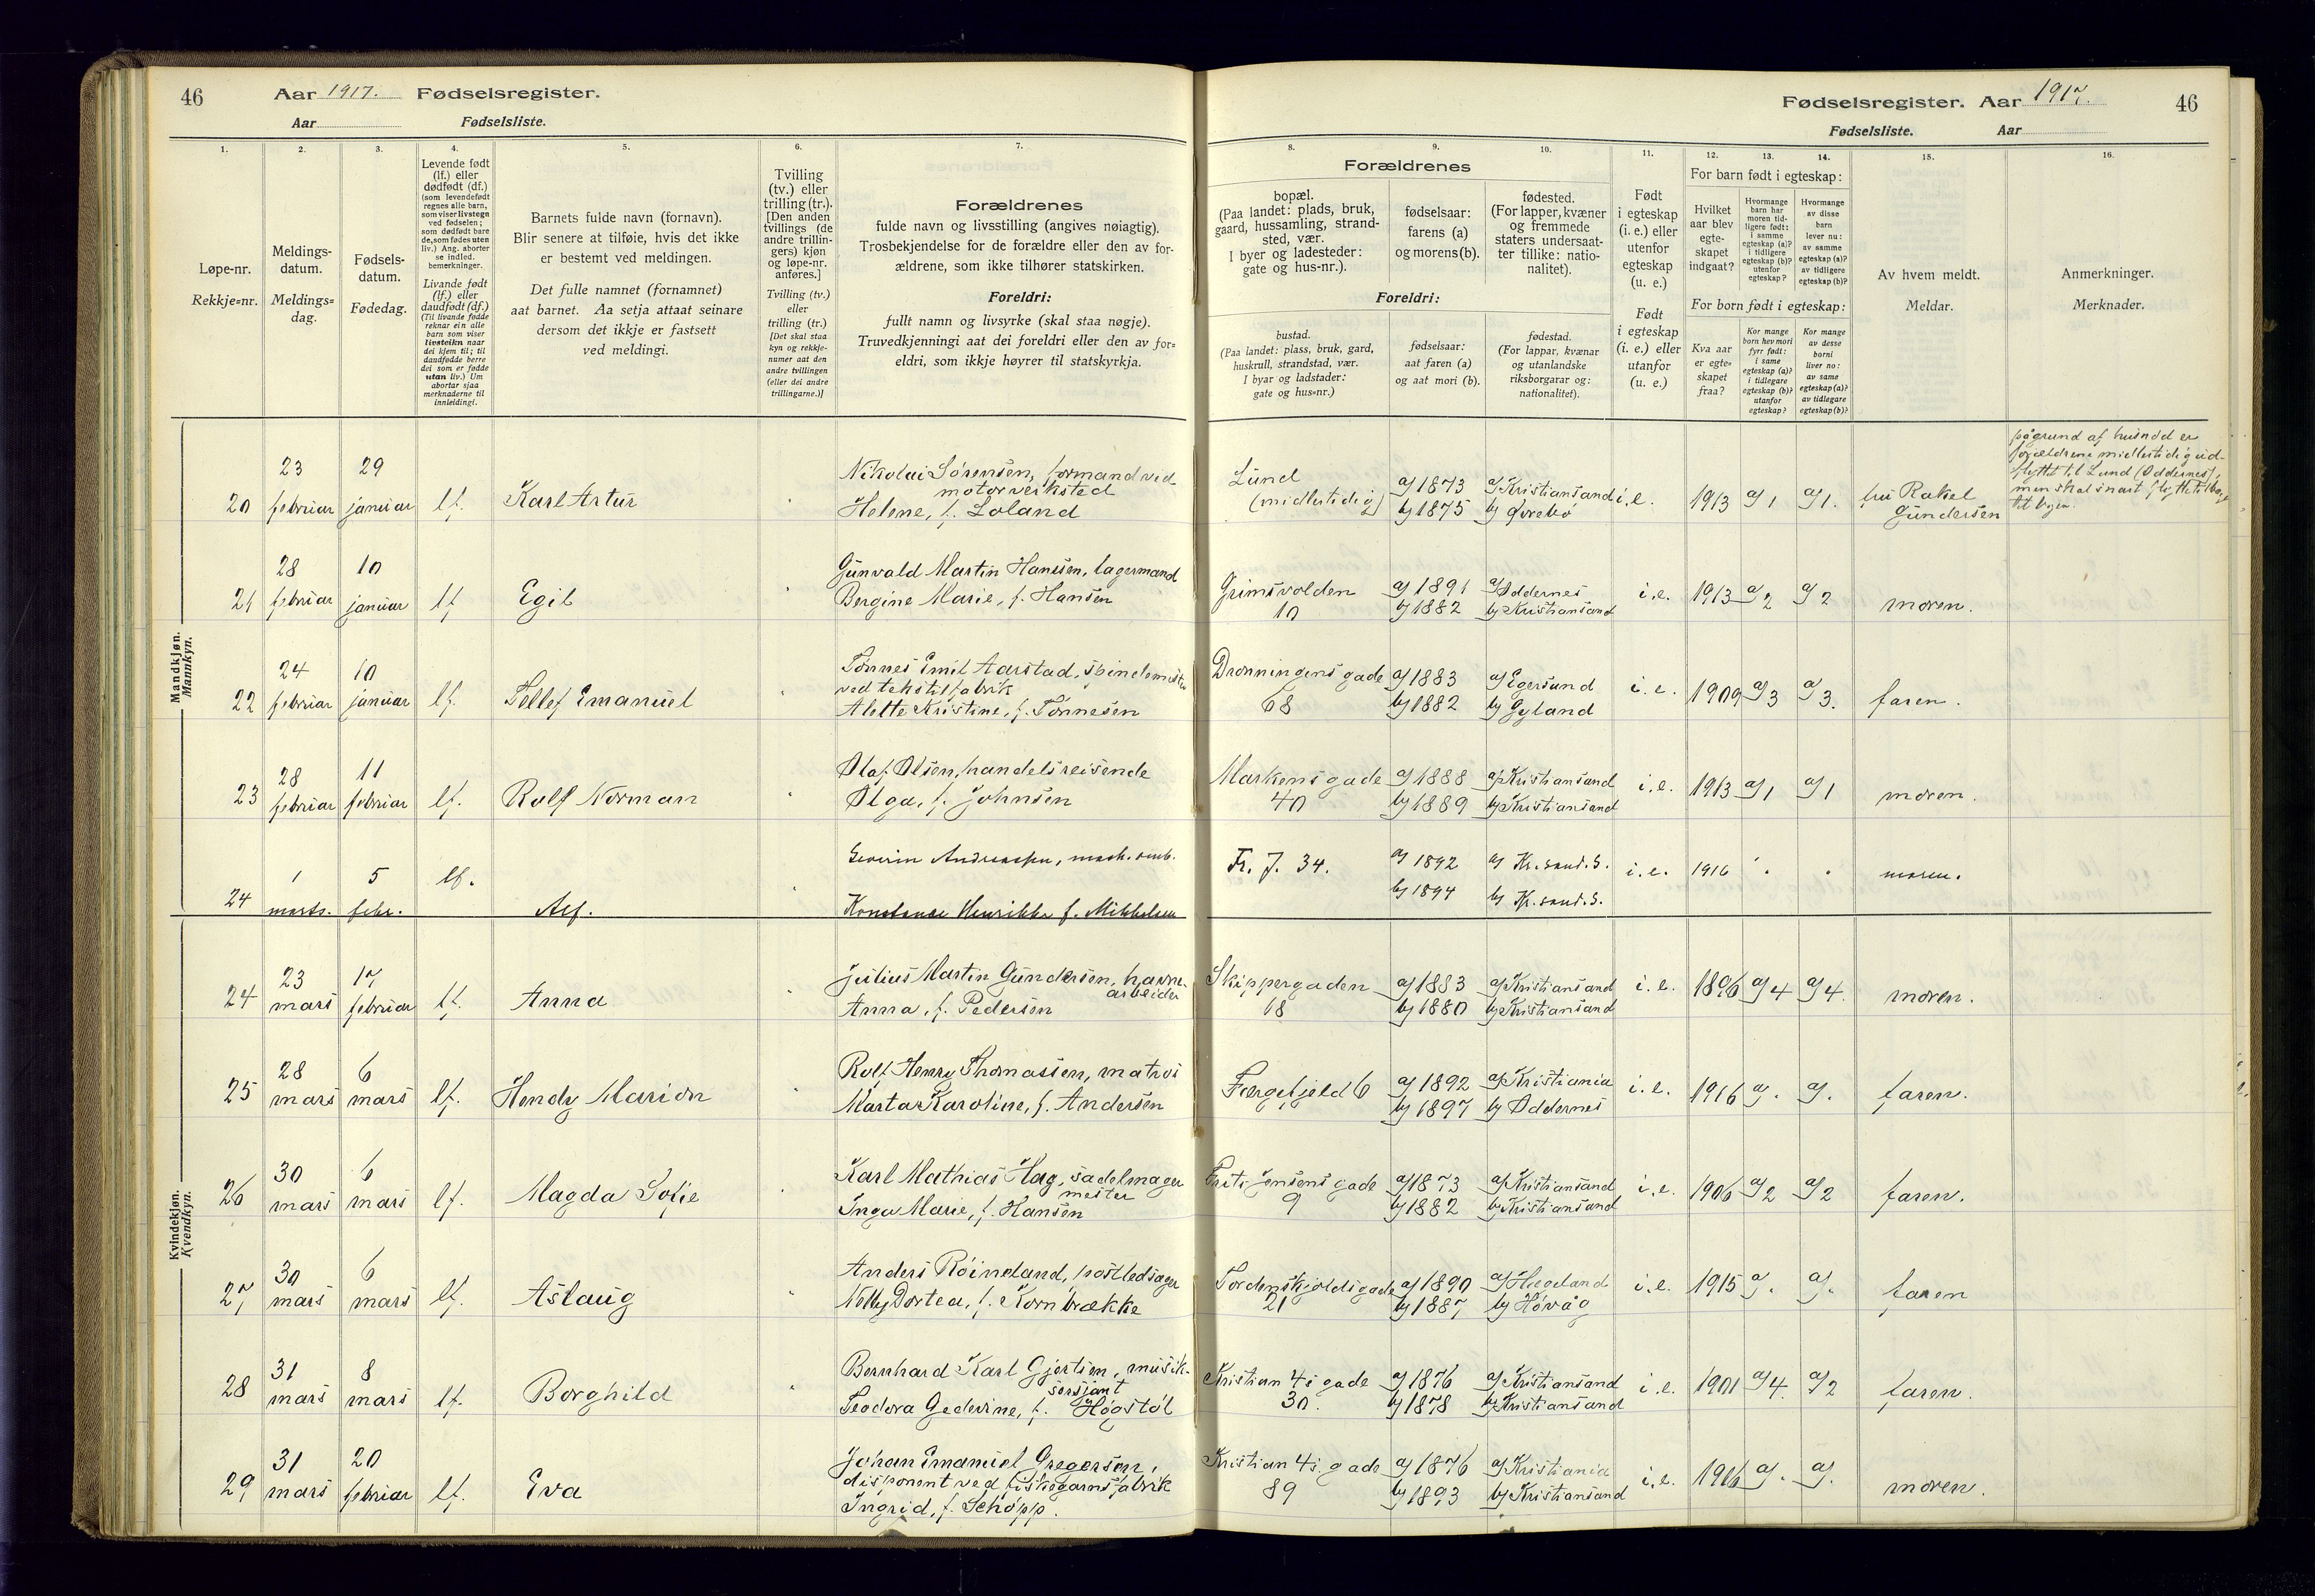 46 Aar 1917. Fødselsregister.
Aar Fødselsliste.
Fødselsregister. Aar 1917. 46
Fødselsliste. Aar
1. 2. 3. 4. 5. 6. 7.
Løpe-nr.
Rekkje=nr.
Meldings-
datum.
Meldings=
dag.
Fødsels-
datum.
Fødedag.
Levende født
(lf.) eller
dødfødt (df.)
(som levendefødt
regnes alle barn,
som viser livstegn
ved fødselen;
som dødfødt bare
de, som fødes uten
liv.) Ang. aborter
se indled.
bemerkninger.
Livande født
(lf.) eller
daudfødt (df.)
(Til livande fødde
reknar ein alle
barn som viser
livsteikn naar
dei kjem til; til
daudfødde berre
dei som er fødde
utan liv.) Um
abortar sjaa
merknaderne til
innleidingi.
Barnets fulde navn (fornavn).
Blir senere at tilføie, hvis det ikke
er bestemt ved meldingen.
Det fulle namnet (fornamnet)
aat barnet. Aa setja attaat seinare
dersom det ikkje er fastsett
ved meldingi.
Tvilling
(tv.) eller
trilling (tr.).
[Den anden
tvillings (de
andre trillin-
gers) kjøn
og løpe-nr.
anføres.]
Tvilling (tv.)
eller
trilling (tr.)
[Det skal staa
kyn og rekkje-
numer aat den
andre tvillingen
(eller dei andre
trillingarne.)]
Forældrenes
fulde navn og livsstilling (angives nøiagtig).
Trosbekjendelse for de forældre eller den av for-
ældrene, som ikke tilhører statskirken.
Foreldri:
fullt namn og livsyrke (skal staa nøgje).
Truvedkjenningi aat dei foreldri eller den av for=
eldri, som ikkje høyrer til statskyrkja.
8. 9. 10. 11. 12. 13. 14. 15. 16.
Forældrenes
bopæl.
(Paa landet: plads, bruk,
gaard, hussamling, strand-
sted, vær.
I byer og ladesteder:
gate og hus-nr.).
fødselsaar:
farens (a)
og morens (b).
fødested.
(For lapper, kvæner
og fremmede
staters undersaat-
ter tillike: natio-
nalitet).
Foreldri:
bustad.
(Paa landet: plass, bruk, gard,
huskrull, strandstad, vær.
I byar og ladstader:
gate og hus=nr.)
fødselsaar:
aat faren (a)
og aat mori (b).
fødestad.
(For lappar, kvænar
og utanlandske
riksborgarar og:
nationalitet).
Født
i egteskap
(i. e.) eller
utenfor
egteskap
(u. e.)
Født
i egteskap
(i. e.) eller
utanfor
(u. e.)
For barn født i egteskap:
Hvilket
aar blev
egte-
skapet
indgaat?
Hvormange
barn har
moren tid-
ligere født:
i samme
egteskap (a)?
i tidligere
egteskap (b)?
utenfor
egteskap?
Hvormange
av disse
barn
lever nu:
av samme
egteskap (a)?
av tidligere
egteskap (b)?
For born født i egteskap:
Kva aar
er egte-
skapet
fraa?
Kor mange
born hev mori
fyrr født:
i same
egteskap (a)?
i tidlegare
egteskap (b)?
utanfor
egteskap?
Kor mange
av desse
borni
liver no:
av same
egteskap (a)?
av tidlegare
egteskap (b)?
Av hvem meldt.
Meldar.
Anmerkninger.
Merknader.
Mandkjøn.
Mannkyn.
20 23 februar 29 januar lf. Karl Artur
Nikolai Sørensen, formand ved
motorverksted
Helene, f. Loland
Lund
(midlertidig)
a) 1873 a) Kristiansand i. e. 1913 a) 1 a) 1. fru Rakel
b) 1875 b) Øvrebø Gundersen
på grund af husnød er
forældrene midlertidig ud-
flyttet til Lund (Oddernes),
men skal snart flytte tilbage
til byen.
21 28 februar 10 januar lf Egil
Gunvald Martin Hansen, lagermand
Bergine Marie, f. Hansen
Grimsvolden
10
a) 1891 a) Oddernes i. e. 1913 a) 2 a) 2 moren.
b) 1882 b) Kristiansand
22 24 februar 10 januar lf. Tellef Emanuel
Tønnes Emil Aarstad, spindemester
ved tekstilfabrik
Alette Kristine, f. Tønnesen
Dronningens gade
68
a) 1883 a) Egersund i. e. 1909 a) 3 a) 3. faren.
b) 1882 b) Gyland
23 28 februar 11 februar lf. Rolf Norman
Olaf Olsen, handelsreisende
Olga, f. Johnsen
Markens gade
40
a) 1888 a) Kristiansand i. e. 1913 a) 1 a) 1 moren.
b) 1889 b) Kristiansand
24 1 marts. 5 febr. lf. Alf.
Severin Andreassen, mask. arb.
Konstanse Henrikke f. Mikkelsen
Fr. J. 34.
a) 1892 a) Kr.sand. S. i. e. 1916 moren.
b) 1894 b) Kr.sand. S.
Kvindekjøn.
Kvendkyn.
24 23 mars 17 februar lf. Anna
Julius Martin Gundersen, havne-
arbeider
Anna, f. Pedersen
Skippergaden
18
a) 1883 a) Kristiansand i. e. 1896 a) 4 a) 4. moren.
b) 1880 b) Kristiansand
25 28 mars 6 mars lf. Hendy Marion
Rolf Henry Thomassen, matros
Marta Karoline, f. Andersen
Færgefjeld 6
a) 1892 a) Kristiania i. e. 1916 a). a). faren.
b) 1897 b) Oddernes
26 30 mars 6 mars lf. Magda Sofie
Karl Mathias Hag, sadelmager
mester
Inga Marie, f. Hansen
Frits Jensens gade
9
a) 1873 a) Kristiansand i. e. 1906 a) 2 a) 2 faren.
b) 1882 b) Kristiansand
27 30 mars 6 mars lf. Aslaug
Anders Røineland, postledsager
Nelly Dortea, f. Kornbrække
Tordenskjolds gade
21
a) 1890 a) Hægeland i. e. 1915 a). a). faren
b) 1887 b) Høvåg
28 31 mars 8 mars lf. Borghild
Bernhard Karl Gjertsen, musik-
sersjant
Teodora Gedevine, f. Høgstøl
Kristian 4s gade
30.
a) 1876 a) Kristiansand i. e. 1901 a) 4. a) 2 faren.
b) 1878 b) Kristiansand
29 31 mars 20 februar lf. Eva
Johan Emanuel Gregersen,
disponent ved fiskegarnsfabrik
Ingrid, f. Schöpp.
Kristian 4s. gade
89
a) 1876 a) Kristiania i. e. 1916 a). a). moren.
b) 1893 b) Kristiansand